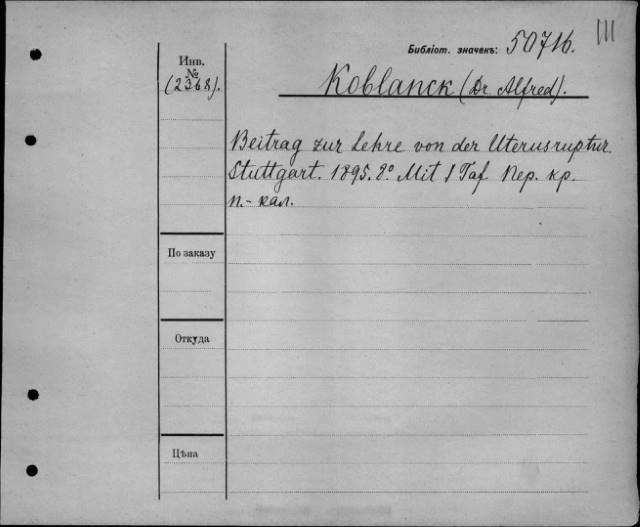 III
Библіот. значекъ: 50716.
Инв.
№
(2368).
Koblanck (Dr Alfred).
Beitrag zur Lehre von der Uterusruptur.
Stuttgart. 1895. 8° Mit 1 Taf. Пер. кр.
п.-кал.
По заказу
Откуда
Цѣна